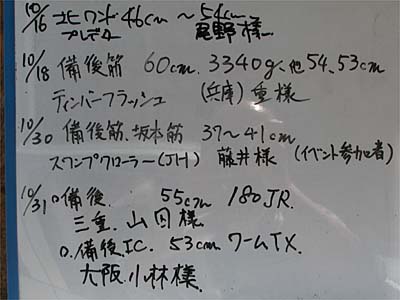 10/16 北ワンド 46cm〜54cm
プレデター 尾野様
10/18 備後筋 60cm. 3340g、他54、53cm
ティンバーフラッシュ (兵庫) 重様
10/30 備後筋、坂本筋 37〜41cm
スワンプクローラー(JH) 藤井様 (イベント参加者)
10/31 ○備後. 55cm 180JR.
三重. 山田様
○. 備後.I.C. 53cm ワームTX.
大阪. 小林様